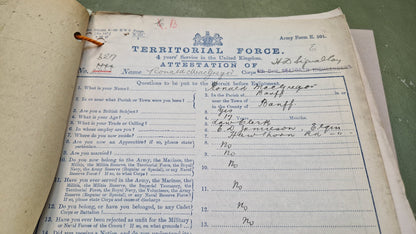 Army Form E. 501.
TERRITORIAL FORCE.
4 years' Service in the United Kingdom.
ATTESTATION OF
No. Name Ronald MacGregor Corps H.D. Signal Coy
Questions to be put to the Recruit before Enlistment.
1. What is your Name? 1. Ronald MacGregor
2. In or near what Parish or Town were you born? 2. In the Parish of Banff
near the Town of Banff
in the County of
3. Are you a British Subject? 3. Yes
4. What is your Age? 4. 17 Months
5. What is your Trade or Calling? 5. Law Clerk
6. In whose employ are you? 6. E.D. Jamieson Elgin
7. Where do you now reside? 7.
8. Are you now an Apprentice? if so, please state particulars 8. No
9. Are you married? 9. No
10. Do you now belong to the Army, the Marines, the Militia, the Militia Reserve, the Imperial Yeomanry, the Territorial Force, the Royal Navy, the Army Reserve (Regular or Special), or any Naval Reserve Force? If so, to what Corps? 10. No
11. Have you ever served in the Army, the Marines, the Militia, the Militia Reserve, the Imperial Yeomanry, the Territorial Force, the Royal Navy, the Volunteers, the Army Reserve (Regular or Special), or any Naval Reserve Force? If so, please state Corps and cause of discharge 11. No
12. Do you belong, or have you belonged, to any Cadet Corps or Battalion? 12. No
13. Have you ever been rejected as unfit for the Military or Naval Forces of the Crown? If so, on what grounds? 13. No